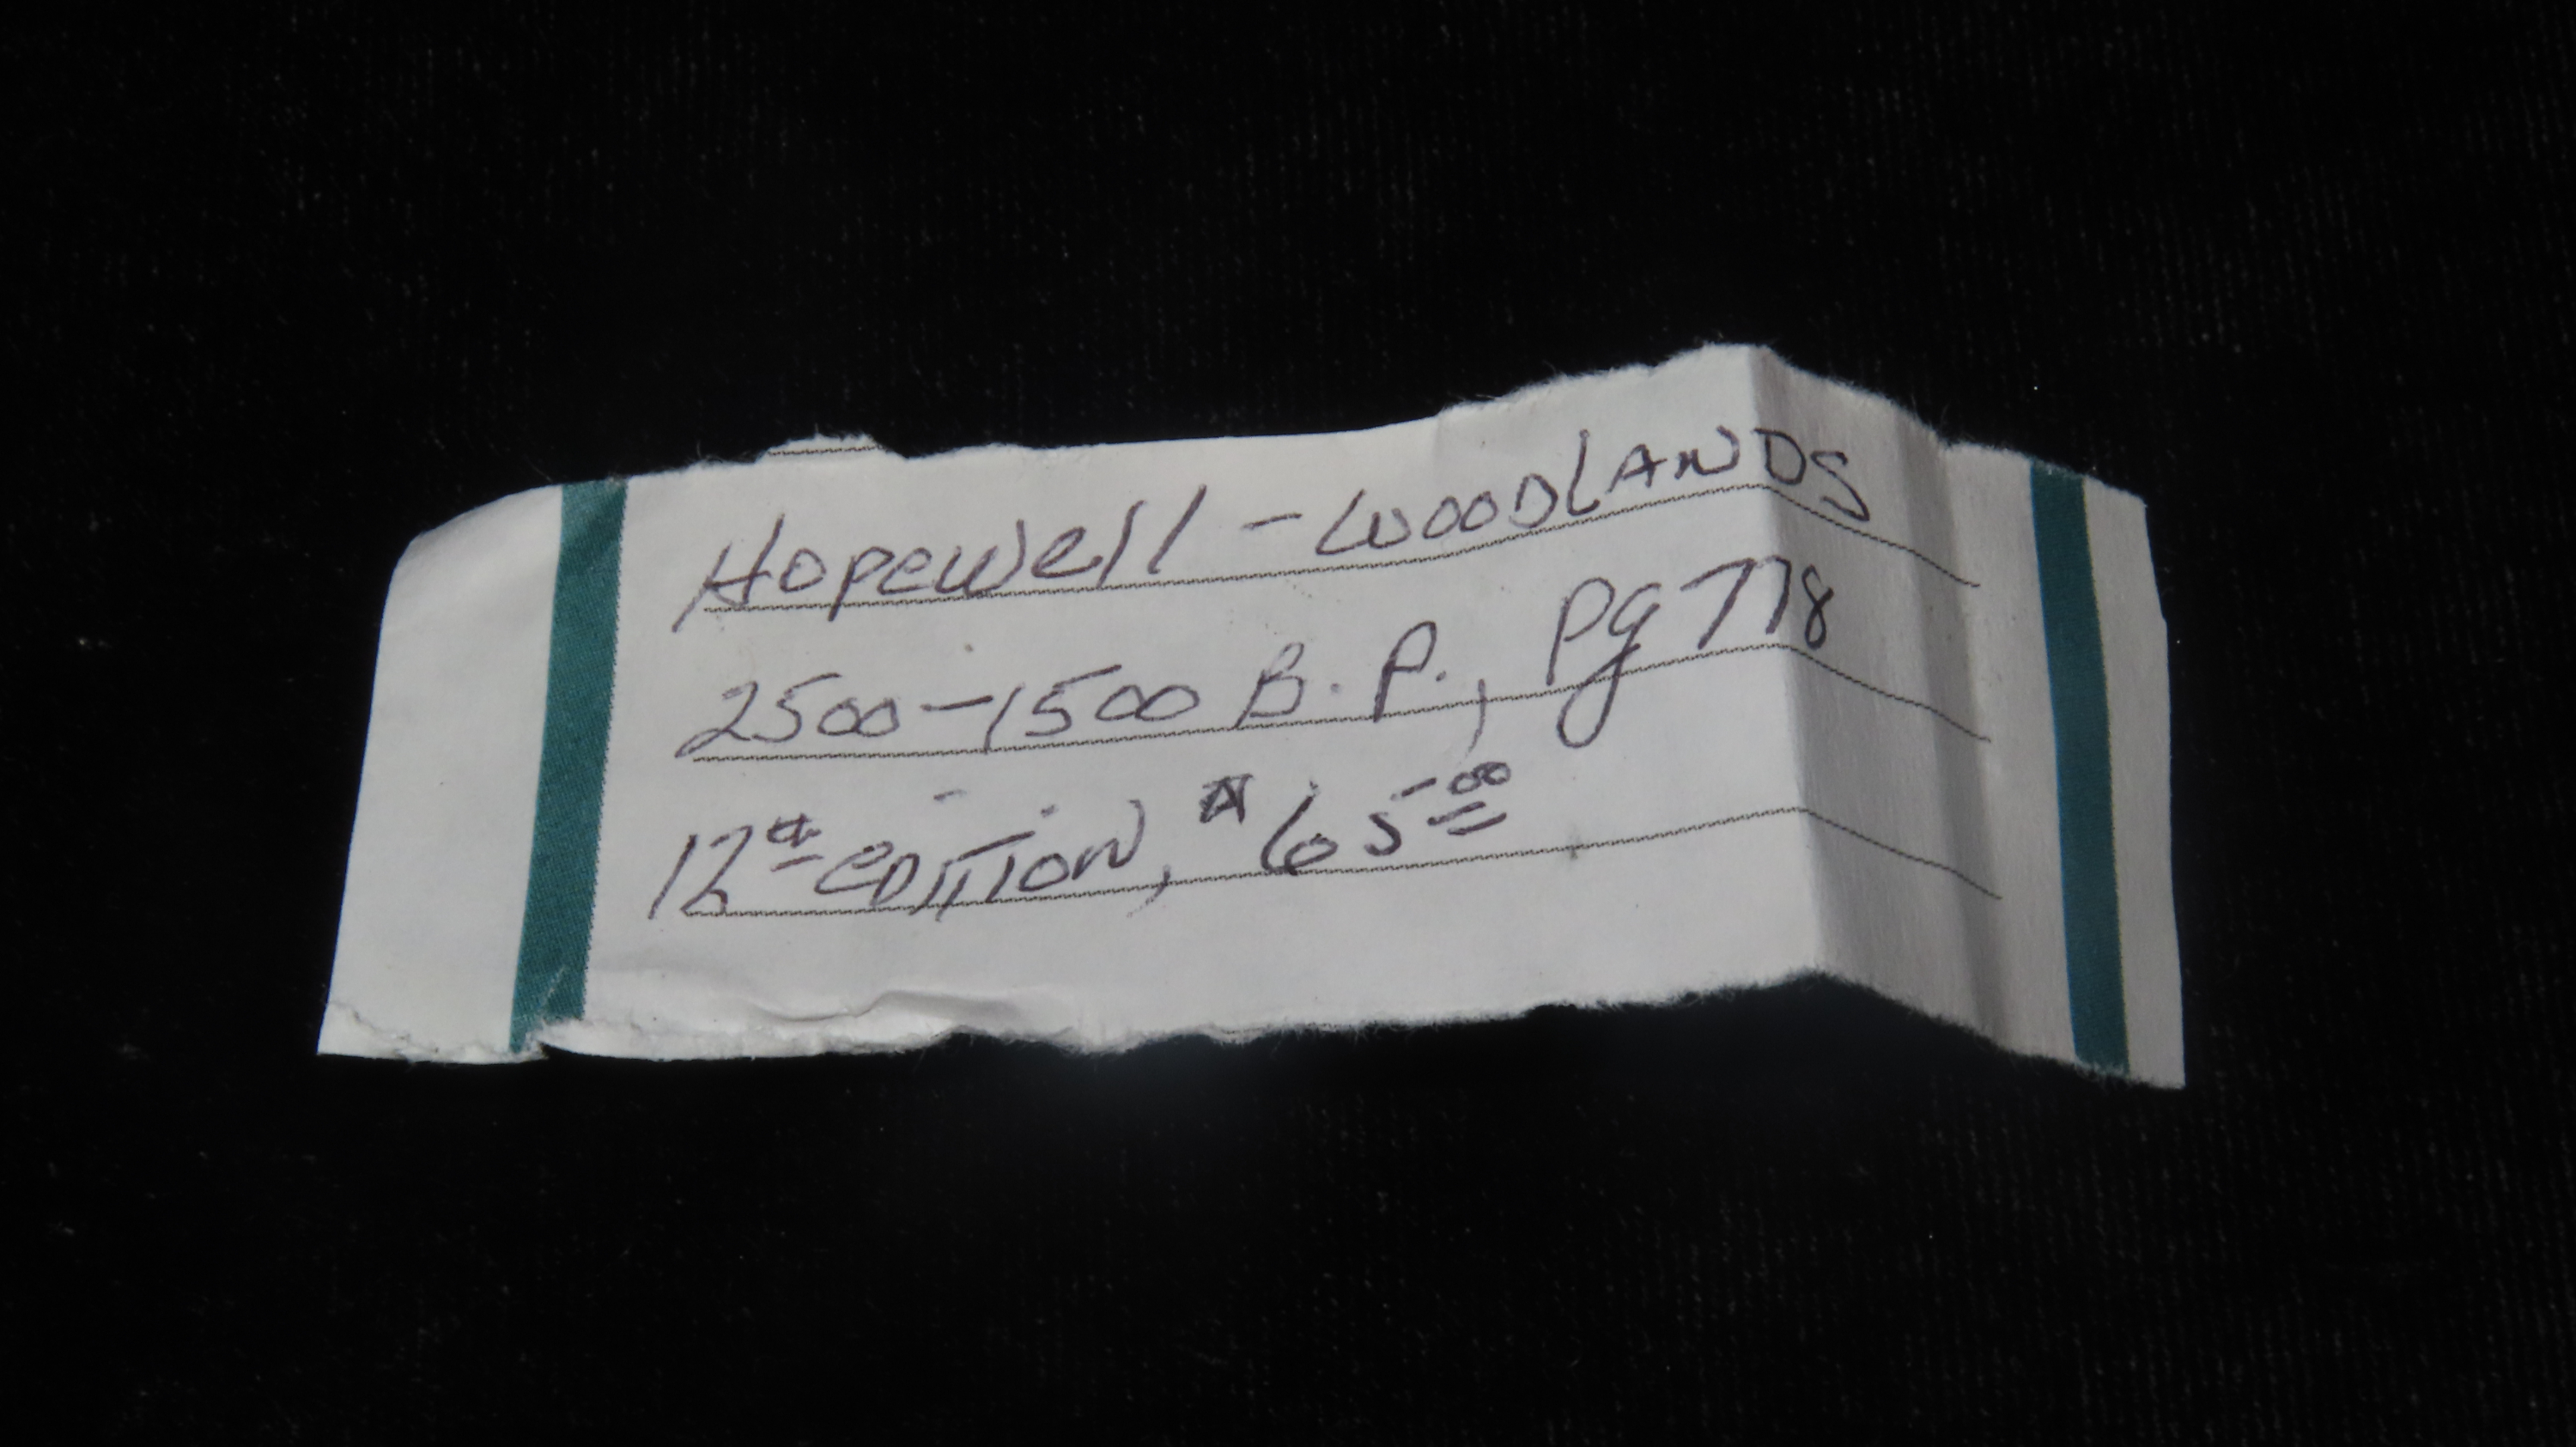 Hopewell - WOODLANDS
2500-1500 B.P., Pg 778
12th EDITION, $65.00